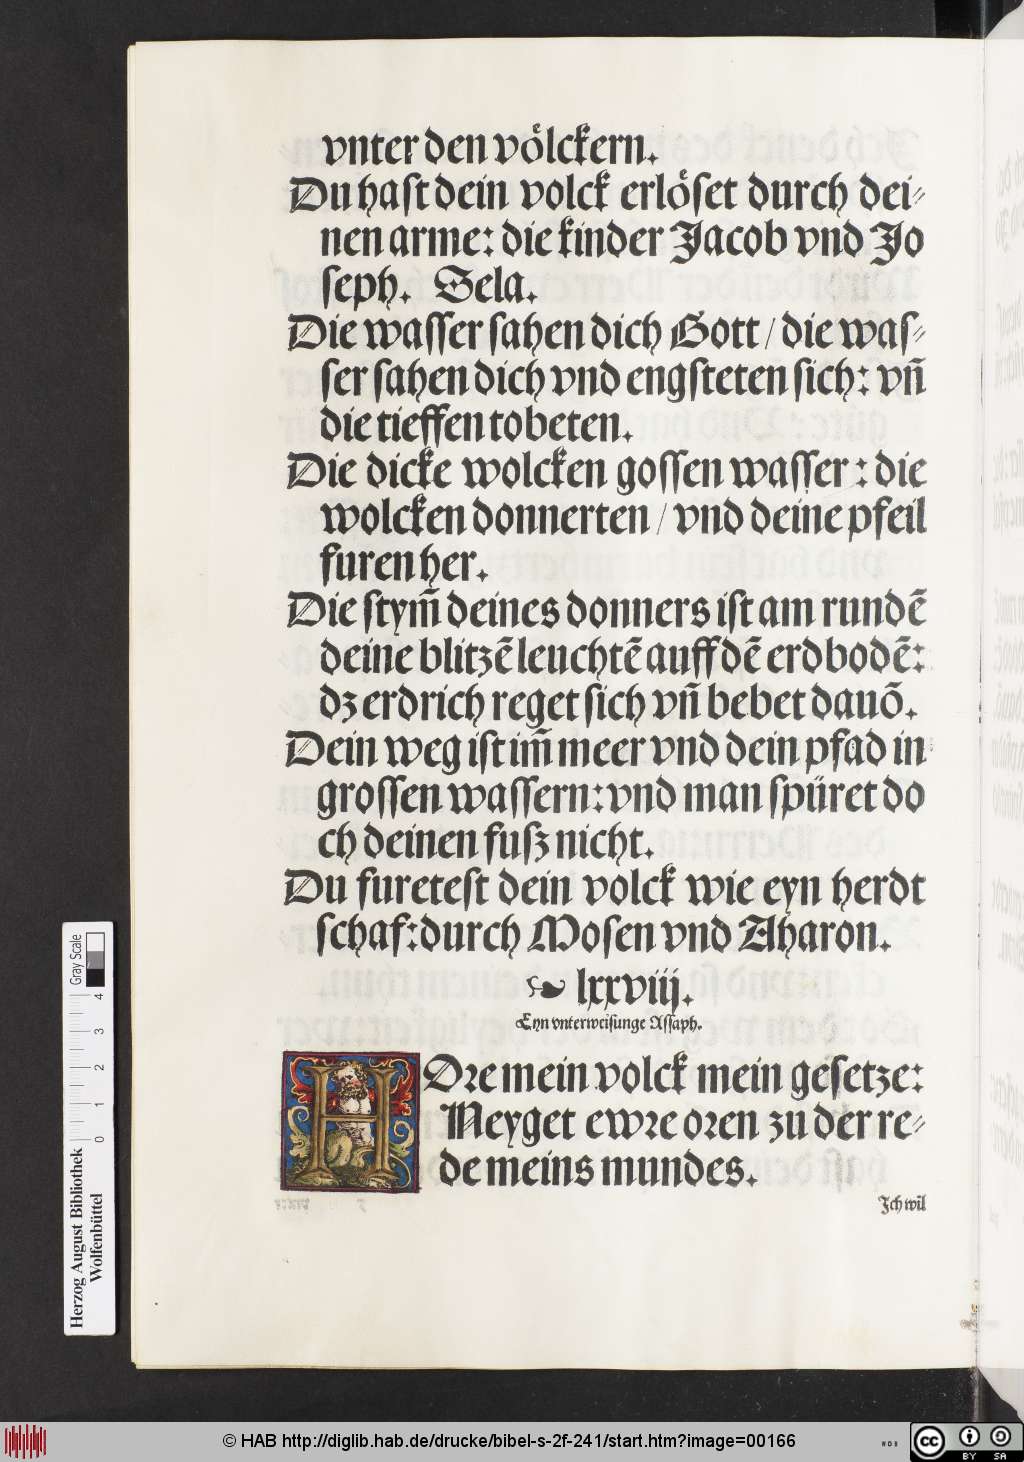 vnter den voͤlckern.
Du hast dein volck erloͤset durch dei⸗
nen arme: die kinder Jacob vnd Jo
seph. Sela.
Die wasser sahen dich Gott / die was⸗
ser sahen dich vnd engsteten sich: vñ
die tieffen tobeten.
Die dicke wolcken gossen wasser: die
wolcken donnerten / vnd deine pfeil
furen her.
Die stym̃ deines donners ist am rundẽ
deine blitzẽ leuchtẽ auff dẽ erdbodẽ:
dz erdrich reget sich vñ bebet dauõ.
Dein weg ist im̃ meer vnd dein pfad in
grossen wassern: vnd man spüret do
ch deinen fusz nicht.
Du furetest dein volck wie eyn herdt
schaf: durch Mosen vnd Aharon.
☙ lxxviij.
Eyn vnterweisunge Assaph.
HOre mein volck mein gesetze:
Neyget ewre oren zu der re⸗
de meins mundes.
Jch wil
Gray Scale
0 1 2 3 4
Herzog August Bibliothek
Wolfenbüttel
© HAB http://diglib.hab.de/drucke/bibel-s-2f-241/start.htm?image=00166
WDB
cc BY SA